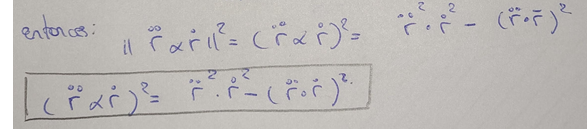 entonces: || r̈ × ṙ ||² = ( r̈ × ṙ )² = r̈² · ṙ² − ( r̈ · r̄ )²
( r̈ × ṙ )² = r̈² · ṙ² − ( r̈ · ṙ )².